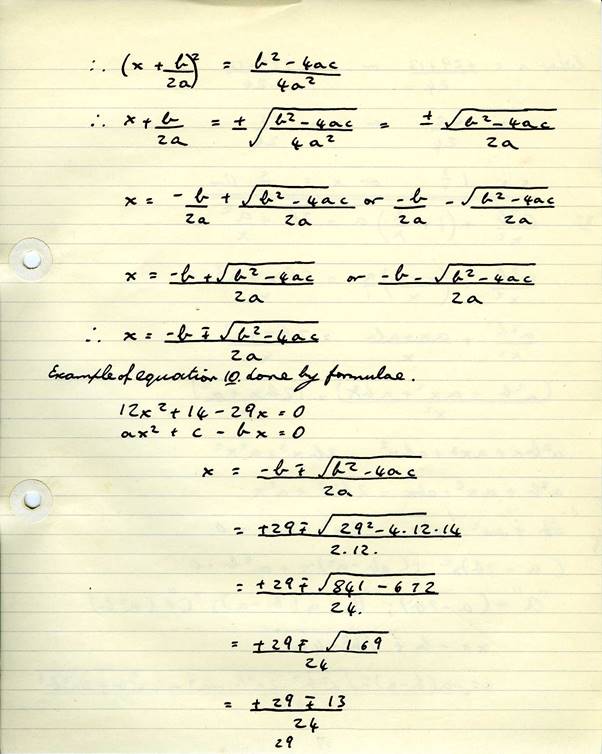 ∴ (x + b/2a)² = b² - 4ac/4a²
∴ x + b/2a = ± √(b² - 4ac/4a²) = ± √(b² - 4ac)/2a
x = -b/2a + √(b² - 4ac)/2a or -b/2a - √(b² - 4ac)/2a
x = -b + √(b² - 4ac)/2a or -b - √(b² - 4ac)/2a
∴ x = -b ∓ √(b² - 4ac)/2a
Example of equation 10. done by formulae.
12x² + 14 - 29x = 0
ax² + c - bx = 0
x = -b ∓ √(b² - 4ac)/2a
= +29 ∓ √(29² - 4·12·14)/2·12.
= +29 ∓ √(841 - 672)/24.
= +29 ∓ √169/24
= +29 ∓ 13/24
29